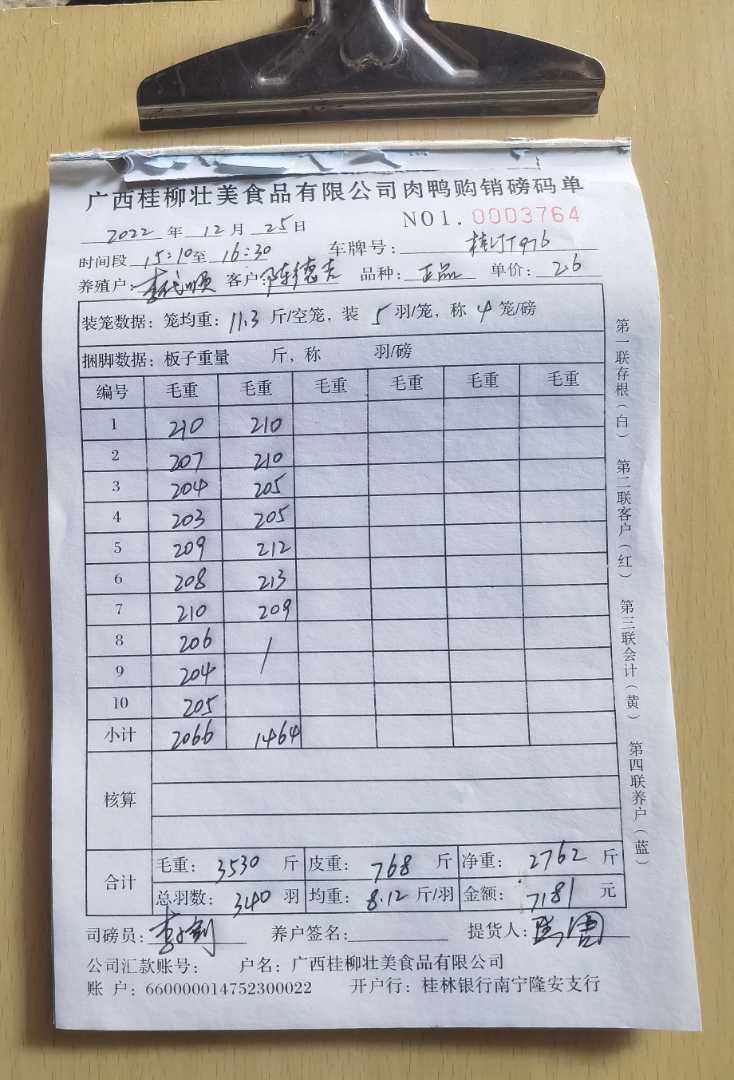 广西桂柳壮美食品有限公司肉鸭购销磅码单
2022 年 12 月 25 日 NO1. 0003764
时间段 15:10 至 16:30 车牌号:
养殖户: 客户: 陈德 品种: 正品 单价: 2.6
装笼数据: 笼均重: 11.3 斤/空笼, 装 5 羽/笼, 称 4 笼/磅
捆脚数据: 板子重量 斤, 称 羽/磅
编号 毛重 毛重 毛重 毛重 毛重 毛重
1 210 210
2 207 210
3 204 205
4 203 205
5 209 212
6 208 213
7 210 209
8 206 /
9 204
10 205
小计 2066 1464
核算
合计 毛重: 3530 斤 皮重: 768 斤 净重: 2762 斤
总羽数: 340 羽 均重: 8.12 斤/羽 金额: 7181 元
司磅员: 养户签名: 提货人:
公司汇款账号: 户名: 广西桂柳壮美食品有限公司
账 户: 660000014752300022 开户行: 桂林银行南宁隆安支行
第一联存根(白) 第二联客户(红) 第三联会计(黄) 第四联养户(蓝)